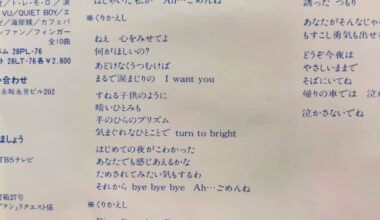 ア/ト・レ・モ・ロ/涙
VU/QUIET BOY/エ
ィ/海岸線/カフェバ
ーンファン/フィンガー
全10曲
ム 28PL-76
ト 28LT-76各¥2,800
い合わせ
赤坂永井ビル202
ましょう
TBSテレビ
号箱27号
プテン」リクエスト係
はしゃいだ私が Ah…ごめんね
※くりかえし
ねえ 心をみせてよ
何がほしいの?
あどけなくつつむけば
まるで涙まじりの I want you
すねる子供のように
暗いひとみも
手のひらのプリズム
気まぐれなひとことで turn to bright
はじめての夜がこわかった
あなたでも感じあえるかな
だめされてみたい気もするわ
それから bye bye bye Ah…ごめんね
※くりかえし
誘った つもり
あなたがそんなじゃ
もすこし勇気も出せ
どうぞ今夜は
やさしいままで
そばにいてね
帰りの車では 泣
泣かさないでね